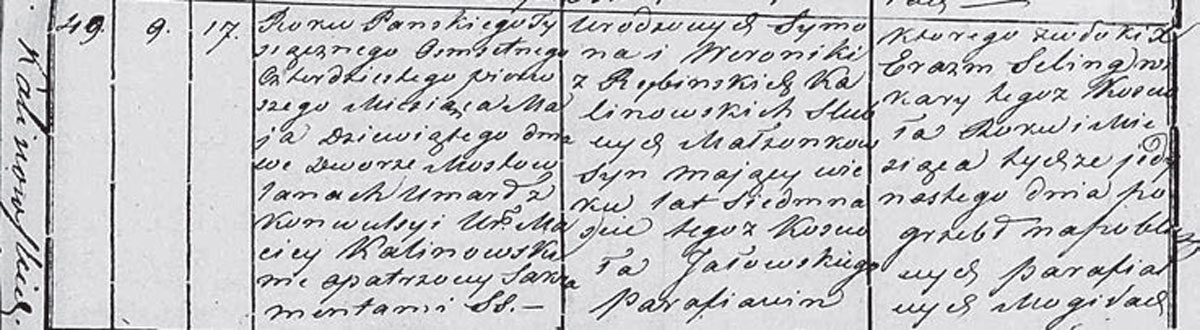 Kalinowskich.
49. 9. 17.
Roku Pańskiego Ty
siącznego Osmsetnego
Czterdziestego pierw
szego Miesiąca Ma
ja dziewiątego dnia
we Dworze Mostow
lanach Umarł z
Konwulsyi Ur. Ma
ciey Kalinowski
nie opatrzony Sakra
mentami SS. —
Urodzonych Symo
na i Weroniki
z Rębinskich Ka
linowskich Slub
nych Małżonkow
Syn mający wie
ku lat Siedmna
ście tegoż Koscio
ła Jałowskiego
Parafianin
Którego zwłoki X
Erazm Seling wi
kary tegoż Koscio
ła Roku i Mie
siąca tychże jedy
nastego dnia po
grzebł na
nych parafial
nych Mogiłach